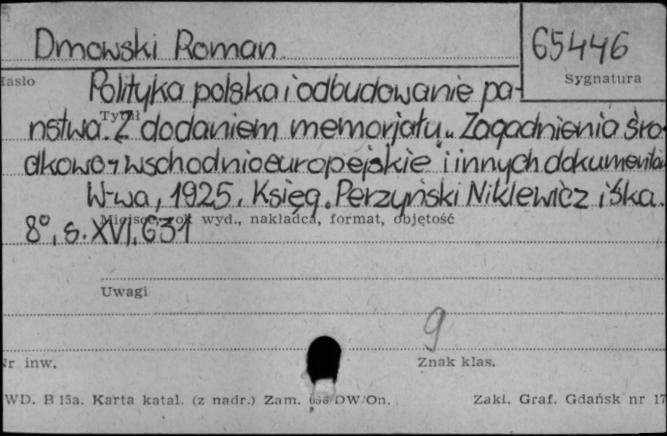 Dmowski Roman
65446
Hasło
Sygnatura
Polityka polska i odbudowanie pa-
Tytuł
ństwa. Z dodaniem memorjału „Zagadnienia śro-
dkowo-wschodnioeuropejskie i innych dokumentów
W-wa, 1925. Księg. Perzyński Niklewicz i Ska.
Miejsce, rok wyd., nakładca, format, objętość
8°, s. XVI, 631
Uwagi
9
Nr inw.
Znak klas.
WD. B 15a. Karta katal. (z nadr.) Zam. DW/On.
Zakł. Graf. Gdańsk nr 17